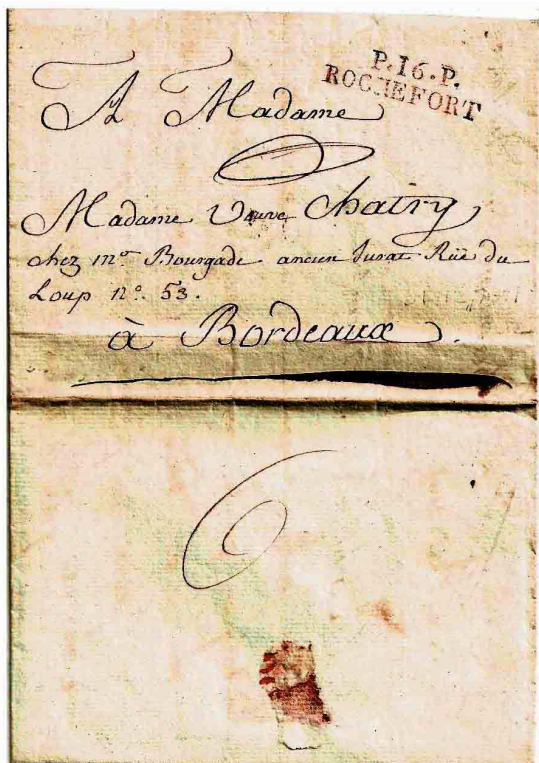 P.16.P.
ROCHEFORT
A Madame
Madame Veuve Chatry
chez mr. Bourgade ancien Jurat Rüe du
Loup n°. 53.
à Bordeaux.